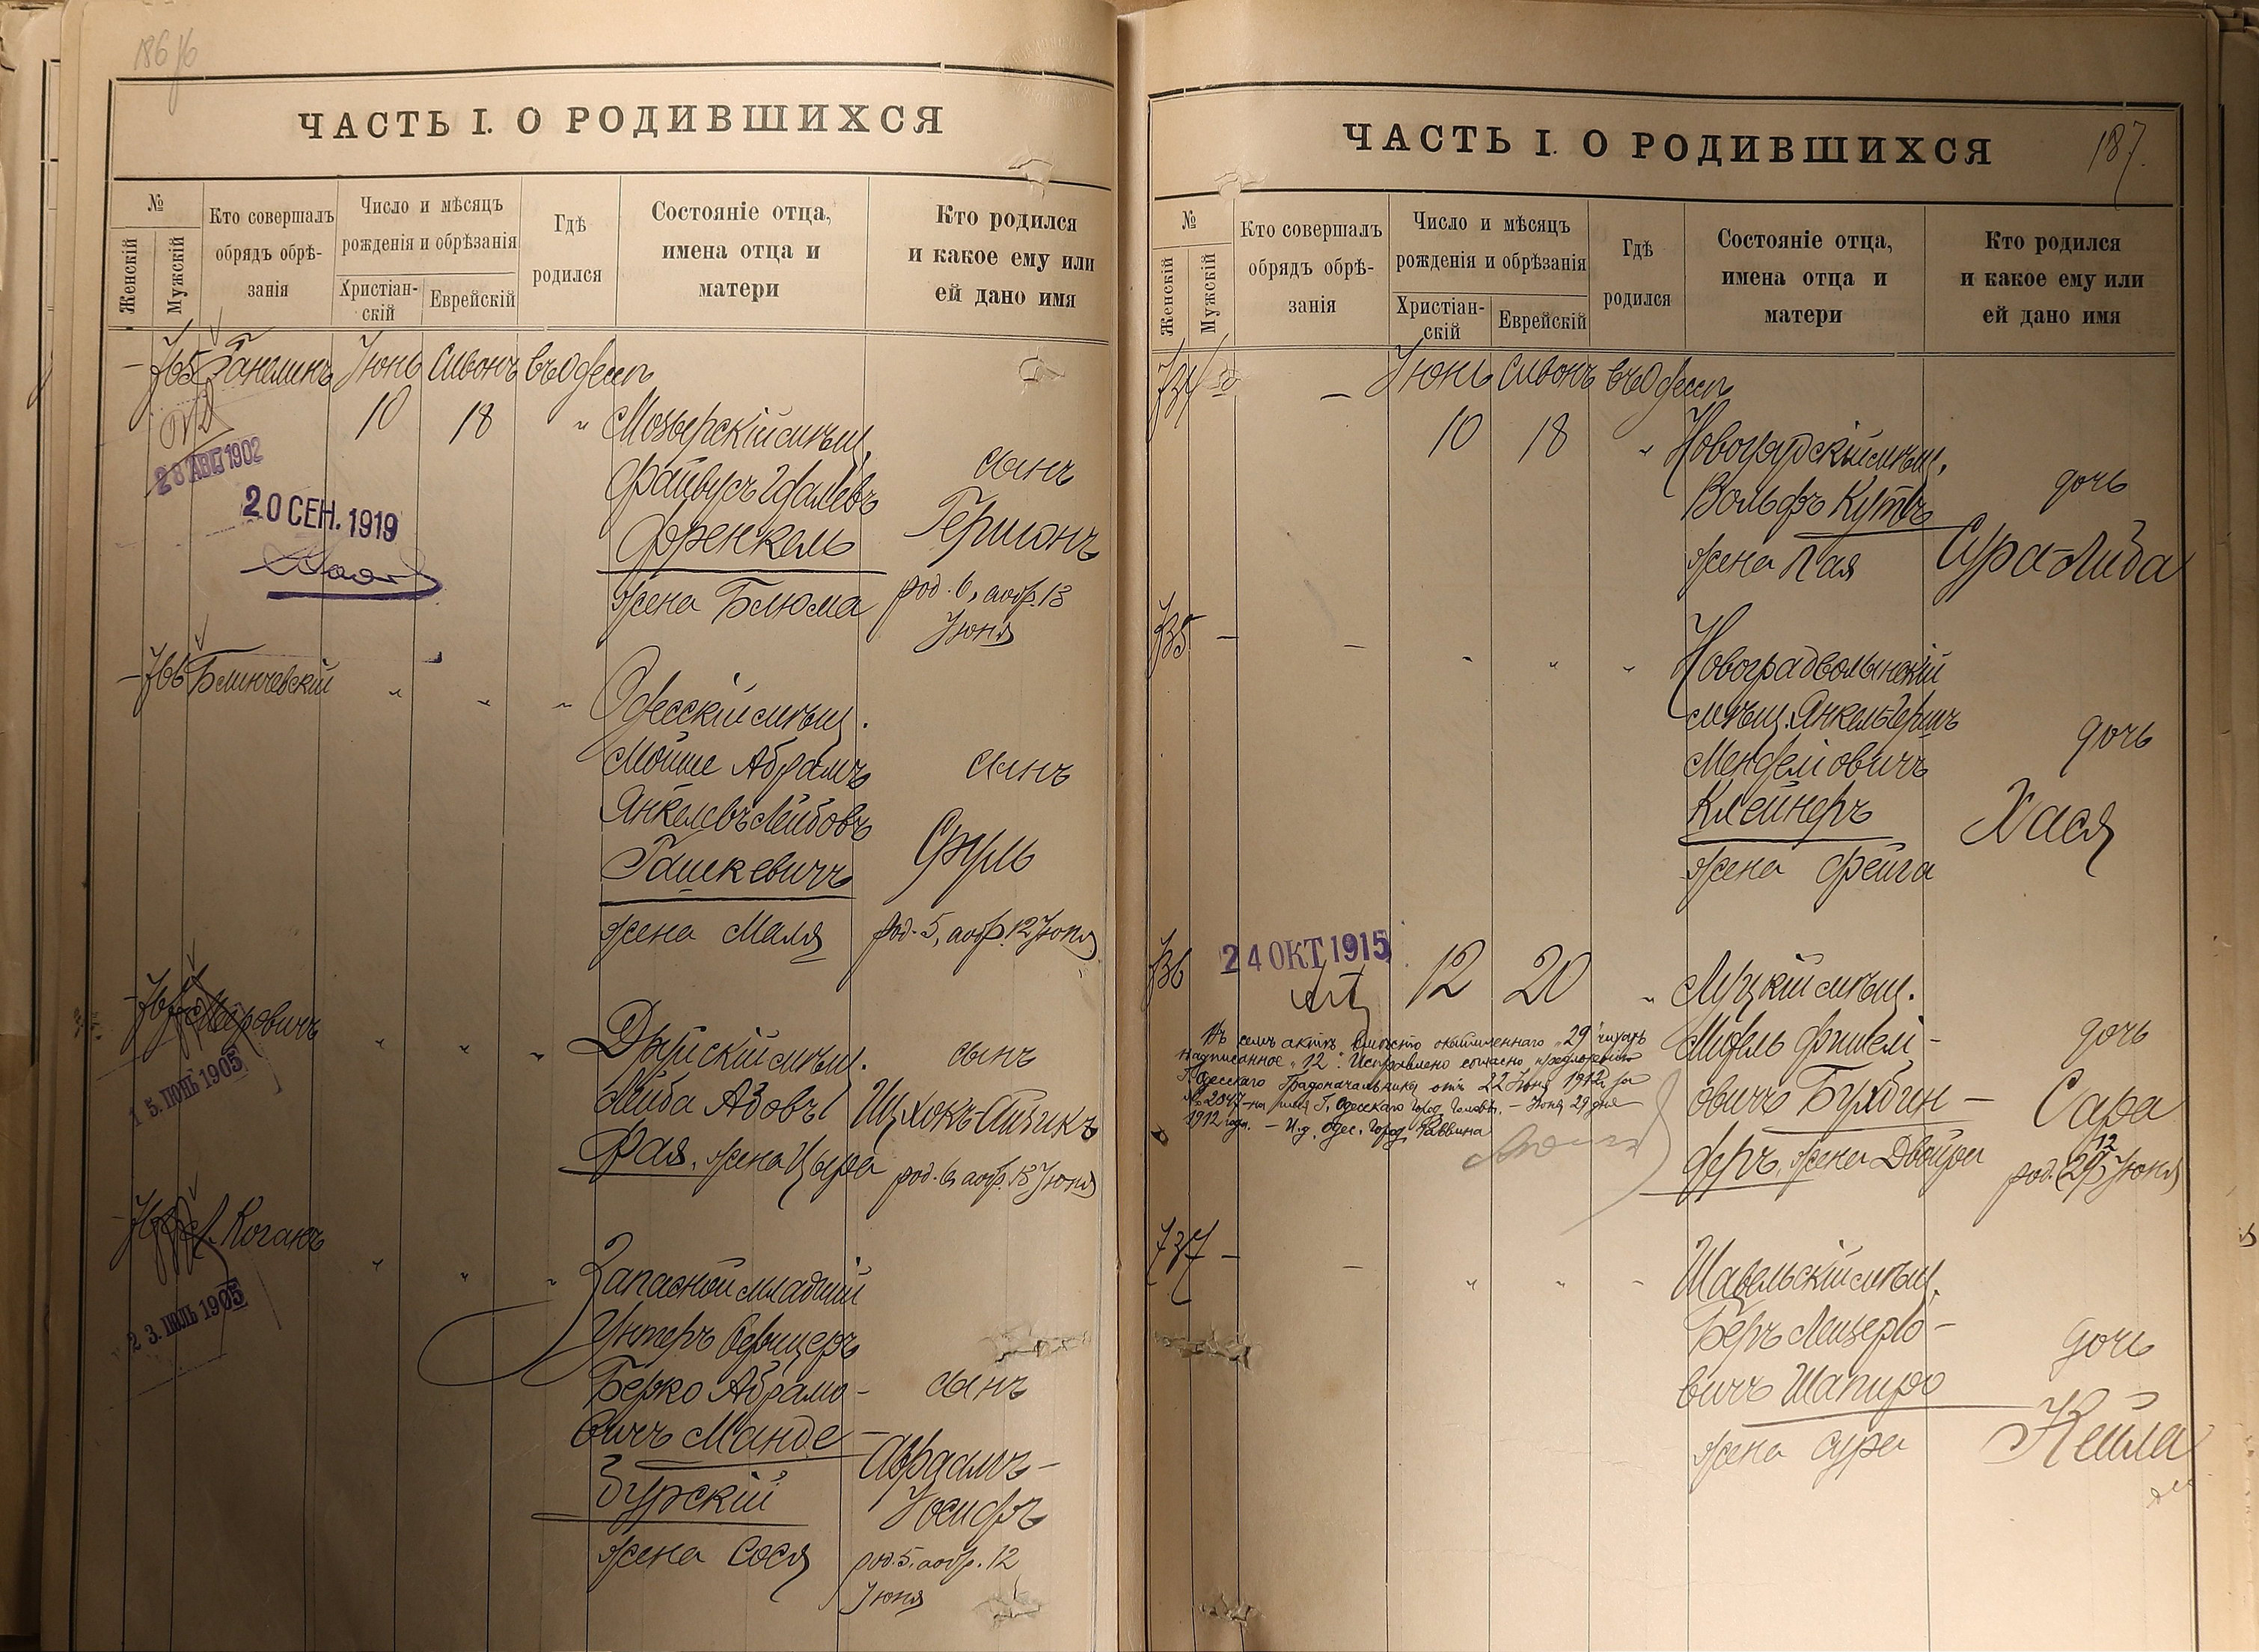 186
ЧАСТЬ I. О РОДИВШИХСЯ
№
Женскій
Мужскій
Кто совершалъ обрядъ обрѣ-занія
Число и мѣсяцъ рожденія и обрѣзанія
Христіан-скій
Еврейскій
Гдѣ родился
Состояніе отца, имена отца и матери
Кто родился и какое ему или ей дано имя
– 765 Іюнь Сивонъ въ Одессѣ
10 18 " Мозырскій мѣщ.
Файвусъ Гдалевъ сынъ
Френкель Гершонъ
жена Блюма род. 6, а обр. 13
Іюня
28 АВГ 1902
20 СЕН. 1919
– 766 Блинчевскій " " " Одесскій мѣщ.
Мойше Абрамъ сынъ
Янкелевъ Лейбовъ
Гашкевичъ Сруль
жена Маля род. 5, а обр. 12 Іюня
– 767 Меровичъ " " " Друйскій мѣщ. сынъ
Лейба Абовъ Ицхокъ-Айзикъ
Фая, жена Цыра род. 6, а обр. 13 Іюня
15. ІЮНЬ 1905
– 768 Коганъ " " " Запасной младшій
Унтеръ Офицеръ
Берко Абрамо- сынъ
вичъ Манде-
бурскій Абрамъ-
Іосифъ
жена Сося род. 5, а обр. 12
Іюня
23. ІЮЛЬ 1905
187.
ЧАСТЬ I. О РОДИВШИХСЯ
№
Женскій
Мужскій
Кто совершалъ обрядъ обрѣ-занія
Число и мѣсяцъ рожденія и обрѣзанія
Христіан-скій
Еврейскій
Гдѣ родился
Состояніе отца, имена отца и матери
Кто родился и какое ему или ей дано имя
734 – Іюнь Сивонъ въ Одессѣ
10 18 " мѣщ.
Вольфъ Кутъ дочь
жена Хая Сура-Либа
735 – – " " " Новоградволынскій
мѣщ. Янкель Гершъ
Менделіовичъ дочь
Клейнеръ Хася
жена Фейга
736 24 ОКТ 1915 12 20 " Луцкій мѣщ.
Фишелі- дочь
овичъ Булбин- Сара
деръ, жена Двойра 12
род. (29) Іюня
Въ семъ актѣ вмѣсто 29 читать
надписанное "12". Исправлено согласно предложенію
Г. Одесскаго Градоначальника отъ 22 Іюня 1912 г. за
№ 2847 на имя Г. Одесскаго Город. Головы. – Іюня 29 дня
1912 года. – И. д. Одес. Город. Раввина
737 – – " " " Шавельскій мѣщ.
Беръ Лейзеро- дочь
вичъ Шапиро
жена Сура Кейла